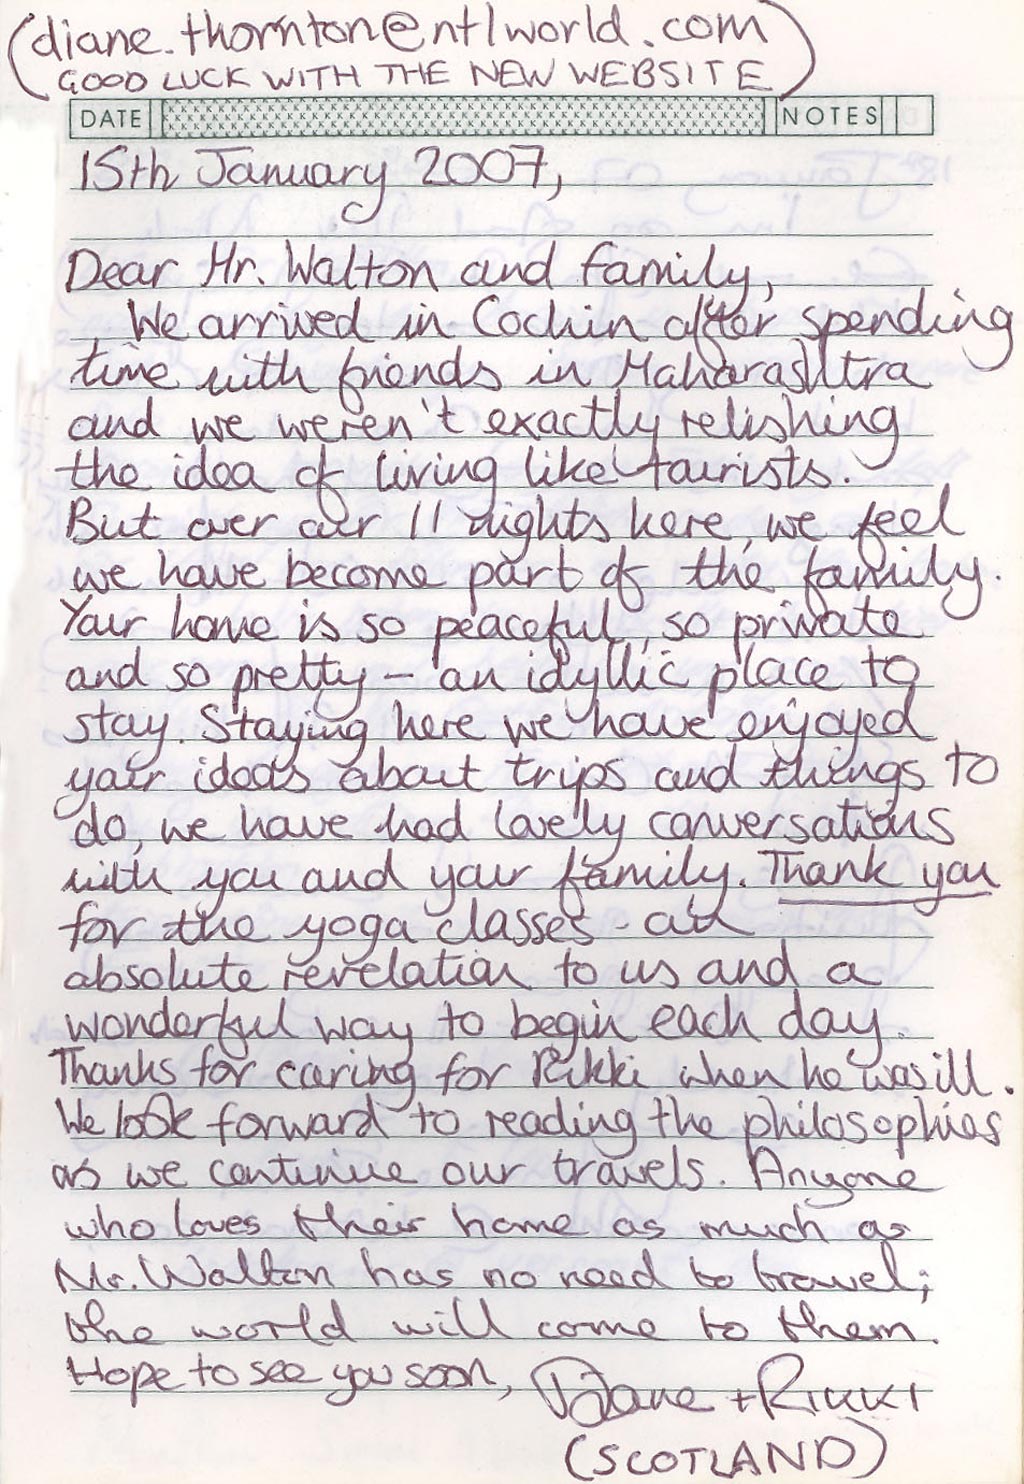 (diane.thornton@ntlworld.com
GOOD LUCK WITH THE NEW WEBSITE)
DATE NOTES
15th January 2007,
Dear Mr. Walton and family,
We arrived in Cochin after spending
time with friends in Maharashtra
and we weren't exactly relishing
the idea of living like tourists.
But over our 11 nights here, we feel
we have become part of the family.
Your home is so peaceful, so private
and so pretty - an idyllic place to
stay. Staying here we have enjoyed
your ideas about trips and things to
do, we have had lovely conversations
with you and your family. Thank you
for the yoga classes - an
absolute revelation to us and a
wonderful way to begin each day.
Thanks for caring for Rikki when he was ill.
We look forward to reading the philosophies
as we continue our travels. Anyone
who loves their home as much as
Mr. Walton has no need to travel;
the world will come to them.
Hope to see you soon, Diane + RIKKI
(SCOTLAND)